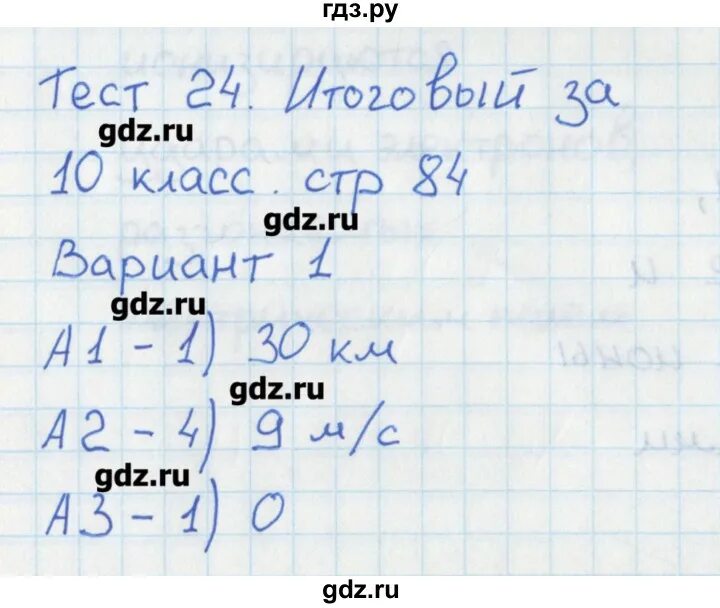 гдз.ру
Тест 24. Итоговый за
gdz.ru
10 класс. стр 84
gdz.ru
Вариант 1
gdz.ru
А1 - 1) 30 км
gdz.ru
А2 - 4) 9 м/с
gdz.ru
А3 - 1) 0
gdz.ru